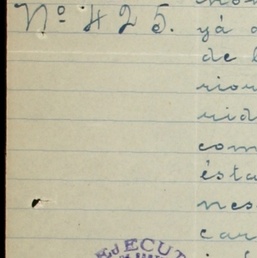 Nº 425.
yá
de
rior
rid
com
ésta
nes
car
EJECUT